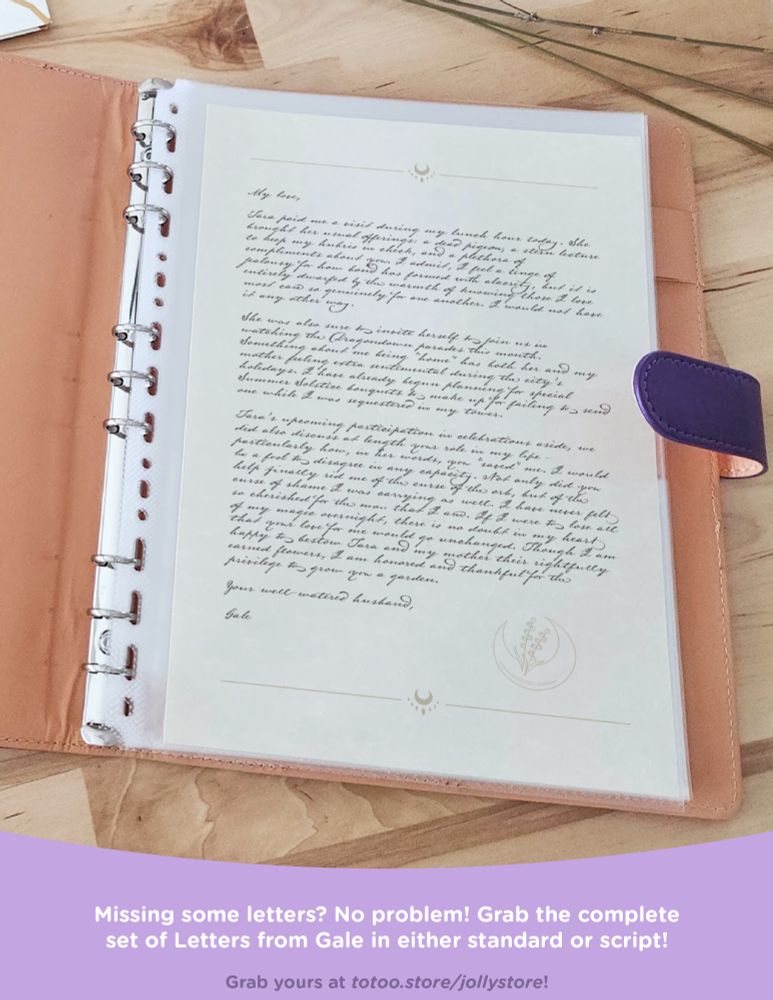 My love,
Tara paid me a visit during my lunch hour today. She
brought her usual offerings: a dead pigeon, a stern lecture
to keep my hubris in check, and a plethora of
compliments about you. I admit, I feel a tinge of
jealousy for how bond has formed with alacrity, but it is
entirely dwarfed by the warmth of knowing those I love
most care so genuinely for one another. I would not have
it any other way.
She was also sure to invite herself to join us in
watching the Dragondown parades this month.
Something about me being "home" has both her and my
mother feeling extra sentimental during the city's
holidays. I have already begun planning for special
Summer Solstice bouquets to make up for failing to send
one while I was sequestered in my tower.
Tara's upcoming participation in celebrations aside, we
did also discuss at length your role in my life -
particularly how, in her words, you "saved" me. I would
be a fool to disagree in any capacity. Not only did you
help finally rid me of the curse of the orb, but of the
curse of shame I was carrying as well. I have never felt
so cherished for the man that I am. If I were to lose all
of my magic overnight, there is no doubt in my heart
that your love for me would go unchanged. Though I am
happy to bestow Tara and my mother their rightfully
earned flowers, I am honored and thankful for the
privilege to grow you a garden.
Your well-watered husband,
Gale
Missing some letters? No problem! Grab the complete
set of Letters from Gale in either standard or script!
Grab yours at totoo.store/jollystore!